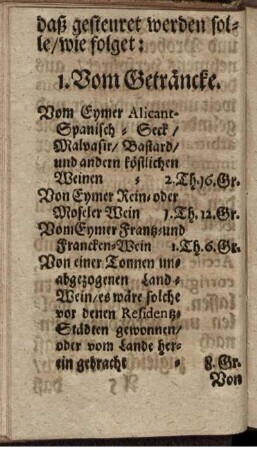 daß gesteuret werden sol-
le/ wie folget:
1. Vom Geträncke.
Vom Eymer Alicant-
Spanisch - Seck /
Malvasir/ Bastard/
und andern köstlichen
Weinen - 2. Th. 16. Gr.
Von Eymer Rein- oder
Moseler Wein 1. Th. 12. Gr.
Vom Eymer Frantz- und
Francken-Wein 1. Th. 6. Gr.
Von einer Tonnen un-
abgezogenen Land-
Wein/ es wäre solche
vor denen Residentz-
Städten gewonnen/
oder vom Lande her-
ein gebracht - 8. Gr.
Von